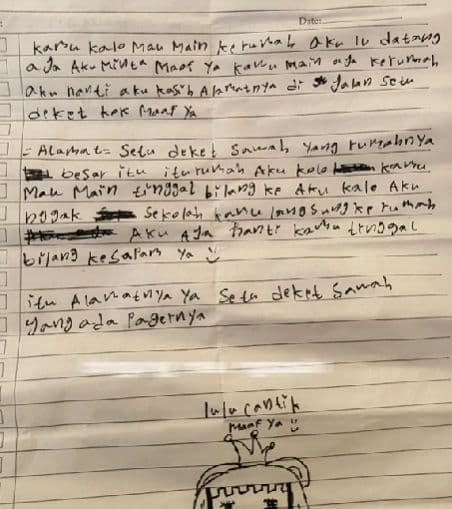 Date:
kamu kalo Mau Main kerumah aku lu datang
aja Aku Minta Maaf ya kamu main aja kerumah
aku nanti aku kasih Alamatnya di Jalan Setu
deket kok Maaf Ya
= Alamat = Setu deket Sawah yang rumahnya
besar itu iturumah Aku kalo kamu
Mau Main tinggal bilang ke Aku kalo Aku
nggak Sekolah kamu langsung ke rumah
Aku Aja nanti kamu tinggal
bilang kesatpam Ya
itu Alamatnya Ya Setu deket Sawah
yang ada Pagernya
lulu cantik
Maaf Ya